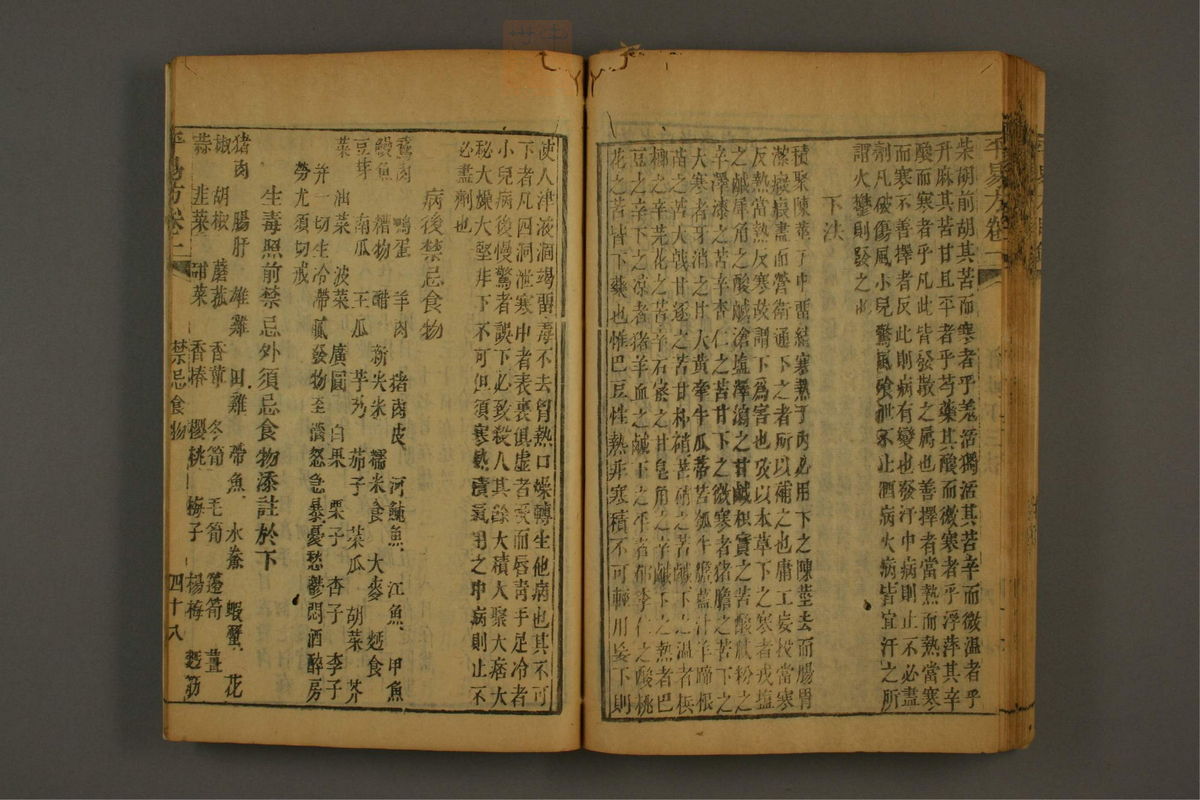 柴胡前胡其苦而寒者乎羗活獨活其苦辛而微温者乎
升麻其苦甘且平者乎芍藥其酸而微寒者乎浮萍其辛
酸而寒者乎凡此皆發散之属也善擇者當熱而熱當寒
而寒不善擇者反此則病有變也發汗中病則止不必盡
劑凡破傷風小兒驚風飱泄不止酒病火病皆宜汗之所
謂火鬱則發之也
下法
積聚陳莝于中留結寒熱于內必用下之陳莝去而腸胃
潔癥瘕盡而營衛通下之者所以補之也庸工妄投當寒
反熱當熱反寒故謂下爲害也攻以本草下之寒者戎塩
之鹹犀角之酸鹹滄塩澤瀉之甘鹹枳實之苦酸膩粉之
辛澤漆之苦辛杏仁之苦甘下之微寒者猪膽之苦下之
大寒者牙消之甘大黃牽牛瓜蒂苦瓠牛膽藍汁羊蹄根
苗之苦大戟甘遂之苦甘朴硝芒硝之苦鹹下之温者梹
榔之辛芫花之苦辛石蜜之甘皂角之辛鹹下之熱者巴
豆之辛下之凉者猪羊血之鹹下之平者郁李仁之酸桃
花之苦皆下藥也惟巴豆性熱非寒積不可輕用妄下則
使人津液涸竭留毒不去胷熱口燥轉生他病也其不可
下者凡四洞泄寒中者表裏俱虚者厥而唇青手足冷者
小兒病後慢驚者誤下必致殺人其餘大積大聚大痞大
秘大燥大堅非下不可但須寒熱積氣用之中病則止不
必盡劑也
病後禁忌食物
鵞肉 鴨蛋 羊肉 猪肉皮 河魨魚 江魚 甲魚
鰻魚 糟物 醋 新尖米 糯米食 大麥 麪食
豆芽 南瓜 王瓜 芋乃 茄子 菜瓜 胡菜 芥
菜 油菜 波菜 廣圓 白果 栗子 杏子 李子
并一切生冷帶膩發物至濟怒急暴憂愁鬱悶酒醉房
勞尤須切戒
生毒照前禁忌外須忌食物添註於下
猪肉 腸肝 雄雞 田雞 帶魚 水鮝 蝦蟹 花
椒 胡椒 蘑菰 香蕈 冬筍 毛筍 薘筍 薑
蒜 韭菜 甜菜 香椿 櫻桃 梅子 楊梅 麪筋
平易方卷二 禁忌食物 四十八